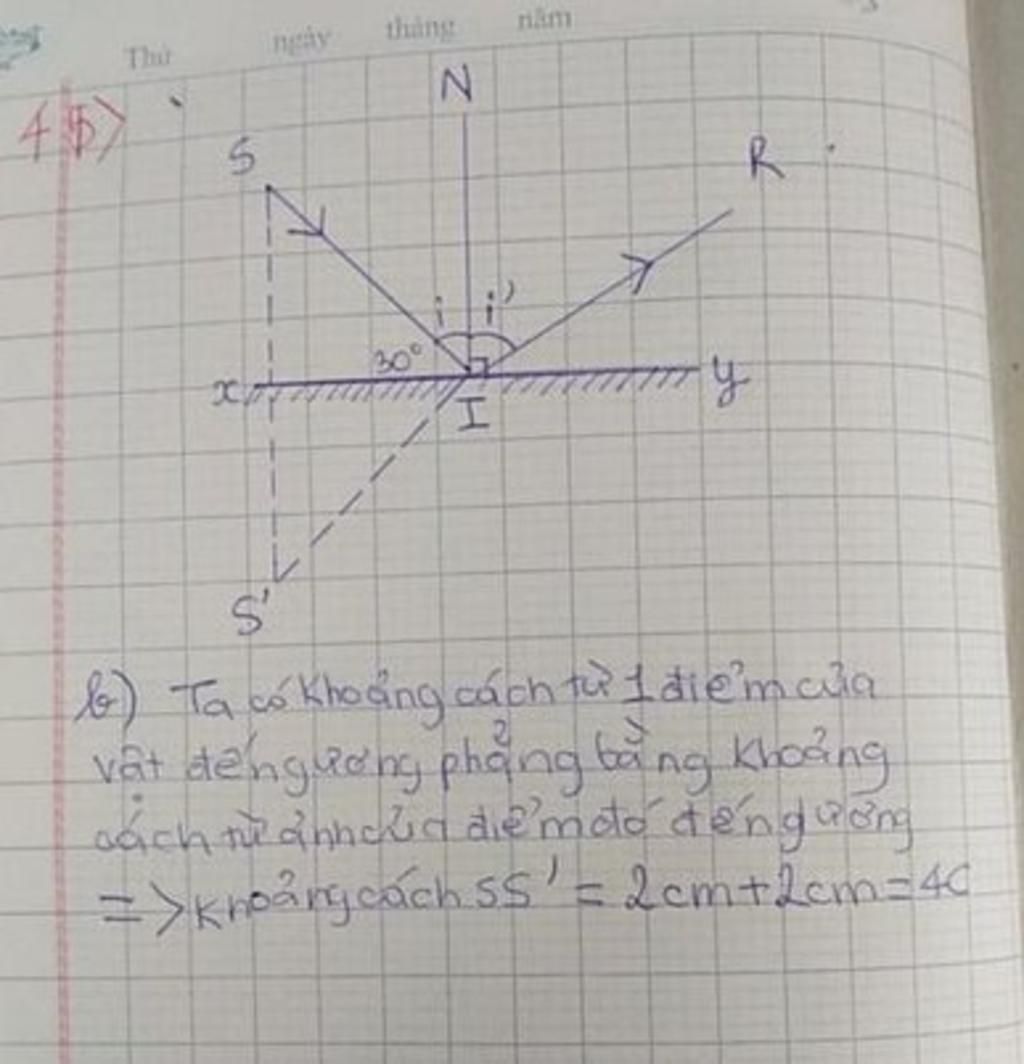 Thứ ngày tháng năm
N
S
R
i i'
30°
x y
I
S'
b) Ta có khoảng cách từ 1 điểm của
vật đến gương phẳng bằng khoảng
cách từ ảnh của điểm đó đến gương
=> khoảng cách SS' = 2cm + 2cm = 4C